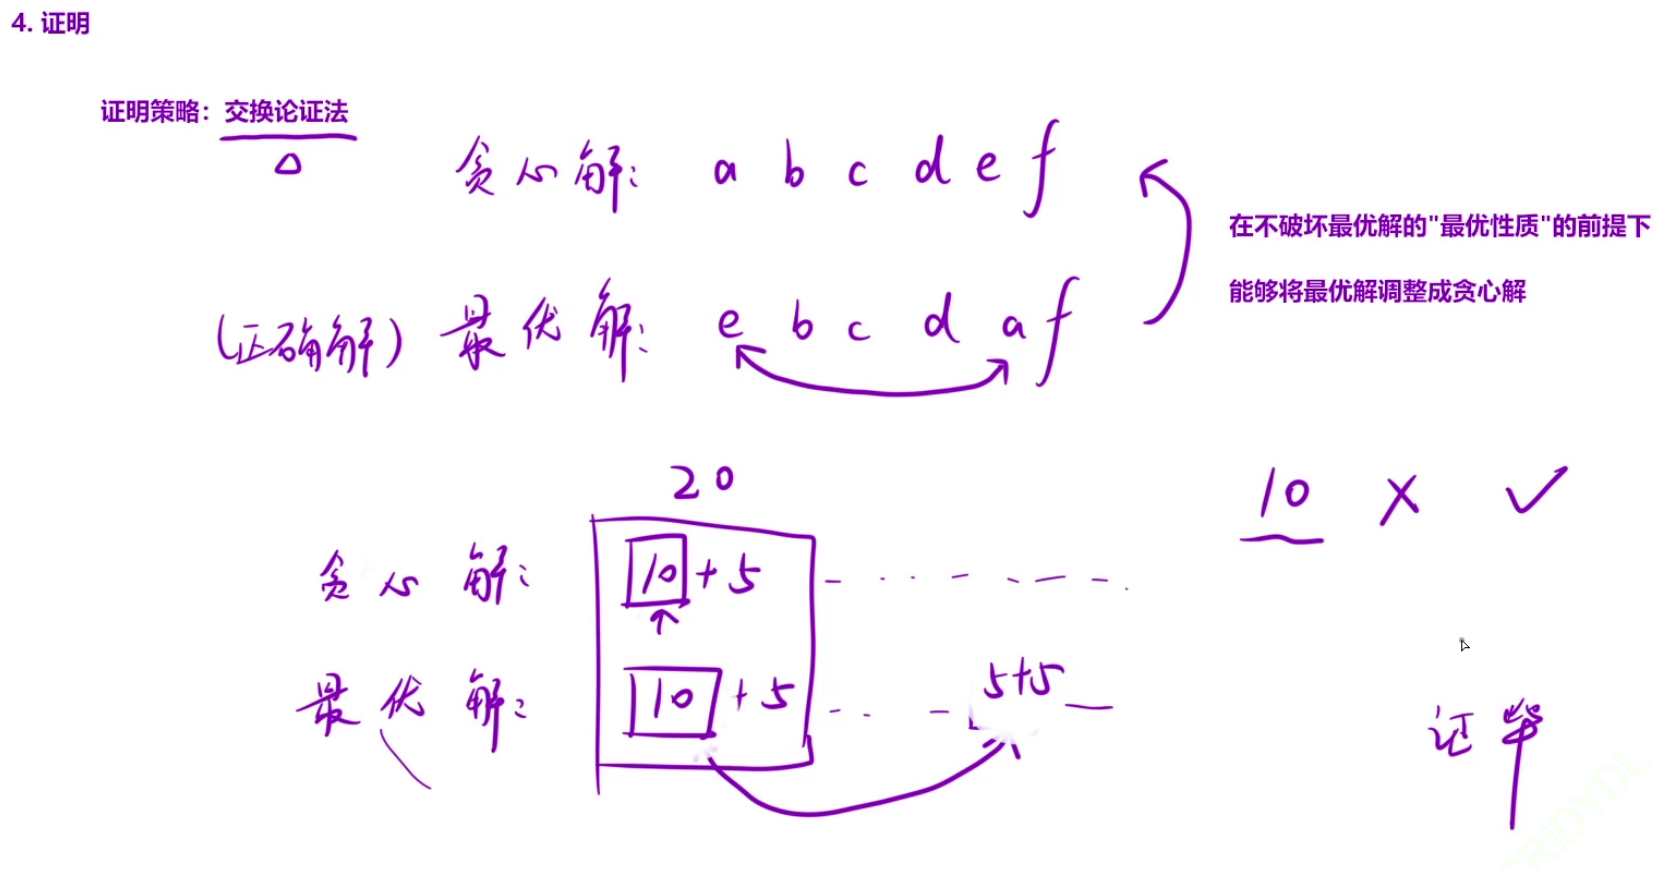 4. 证明
证明策略：交换论证法
贪心解： a b c d e f
在不破坏最优解的"最优性质"的前提下
能够将最优解调整成贪心解
(正确解) 最优解： e b c d a f
20
10 × ✓
贪心解： 10 + 5
最优解： 10 + 5 5+5
证毕